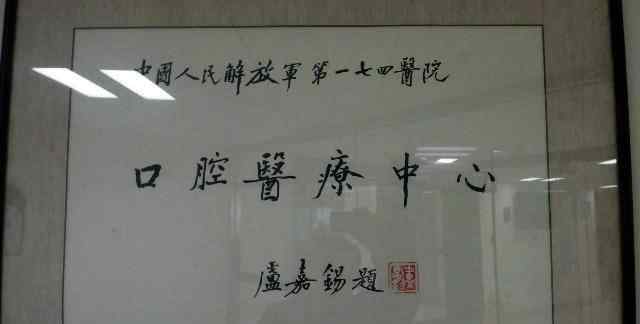 中國人民解放軍第一七四醫院
口腔醫療中心
盧嘉錫題